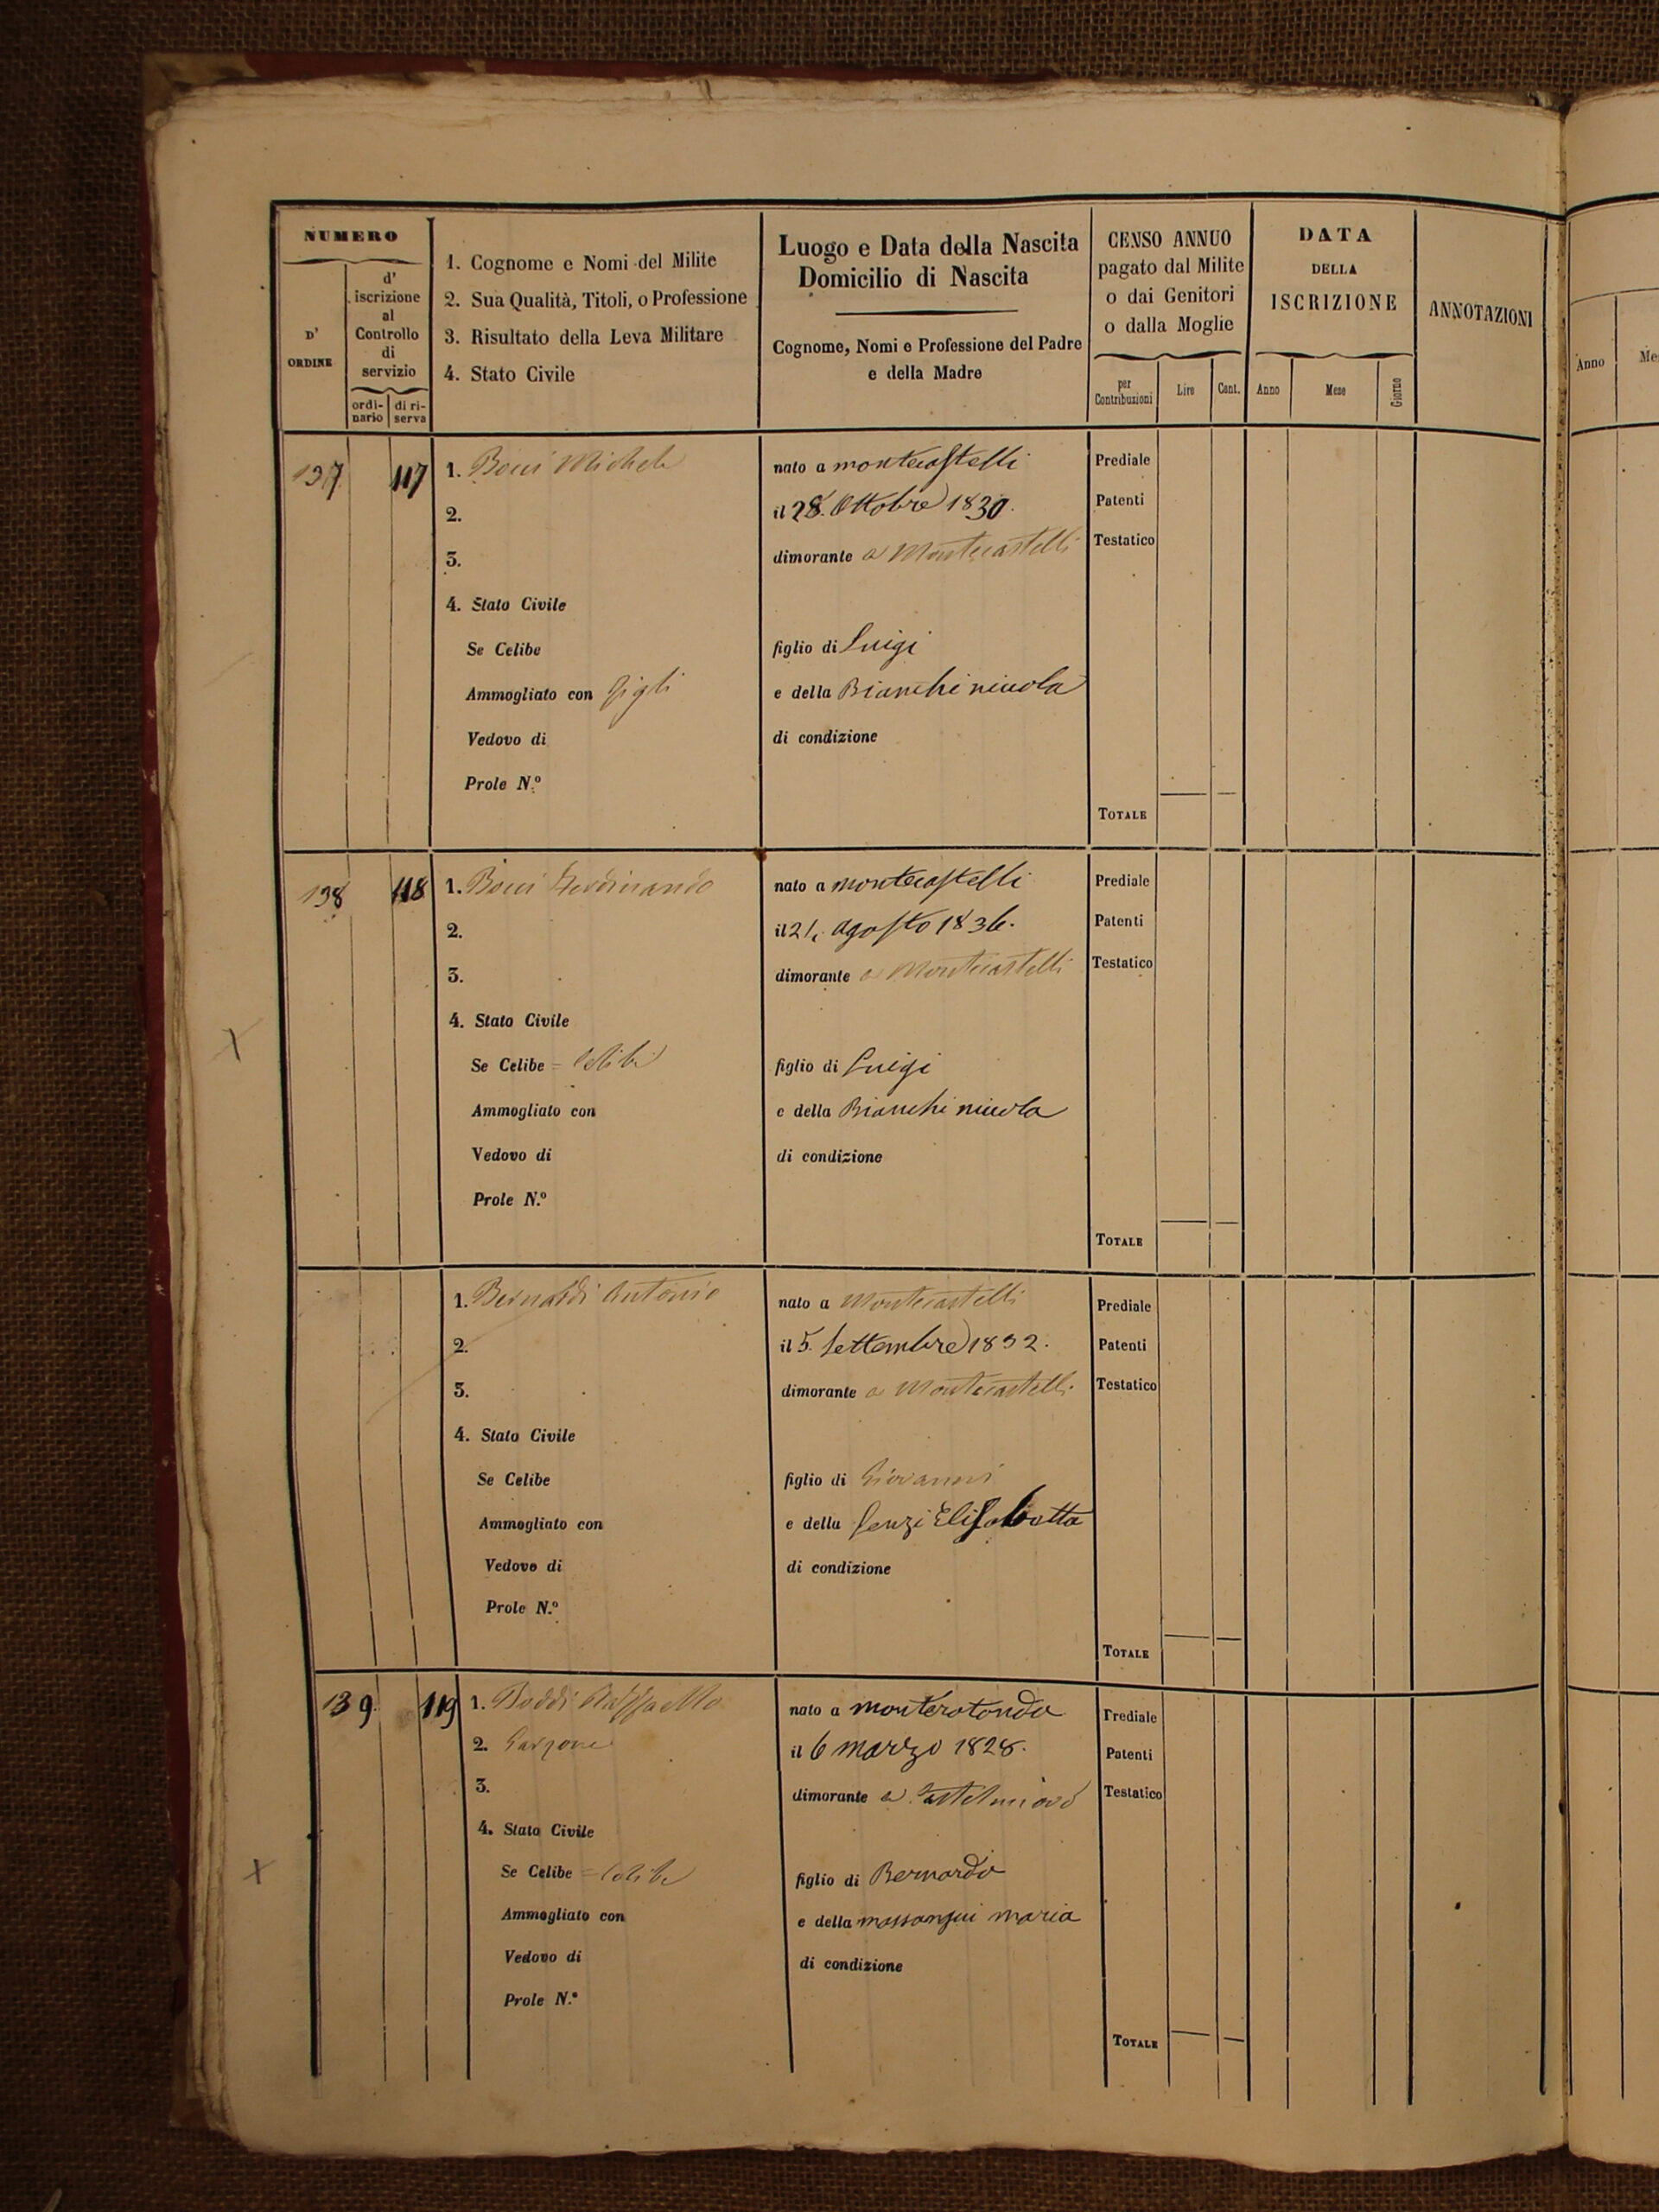 NUMERO
D' ORDINE
d' iscrizione al Controllo di servizio
ordinario
di riserva
1. Cognome e Nomi del Milite
2. Sua Qualità, Titoli, o Professione
3. Risultato della Leva Militare
4. Stato Civile
Luogo e Data della Nascita
Domicilio di Nascita
Cognome, Nomi e Professione del Padre
e della Madre
CENSO ANNUO
pagato dal Milite
o dai Genitori
o dalla Moglie
per Contribuzioni
Lire
Cent.
DATA
DELLA
ISCRIZIONE
Anno
Mese
Giorno
ANNOTAZIONI
Anno
137
117
1. Bocci Michele
2.
3.
4. Stato Civile
Se Celibe
Ammogliato con Gigli
Vedovo di
Prole N.º
nato a montecastelli
il 28. Ottobre 1830.
dimorante a Montecastelli
figlio di Luigi
e della Bianchi niccola
di condizione
Prediale
Patenti
Testatico
TOTALE
138
118
1. Bocci Ferdinando
2.
3.
4. Stato Civile
Se Celibe = Celibe
Ammogliato con
Vedovo di
Prole N.º
nato a montecastelli
il agosto 1836.
dimorante a Montecastelli
figlio di Luigi
e della Bianchi niccola
di condizione
Prediale
Patenti
Testatico
TOTALE
1. Bernardi Antonio
2.
3.
4. Stato Civile
Se Celibe
Ammogliato con
Vedovo di
Prole N.º
nato a Montecastelli
il 5. Settembre 1832.
dimorante a Montecastelli
figlio di Giovanni
e della Elisabetta
di condizione
Prediale
Patenti
Testatico
TOTALE
139
119
1. Raffaello
2. Garzone
3.
4. Stato Civile
Se Celibe = Celibe
Ammogliato con
Vedovo di
Prole N.º
nato a monterotondo
il 6 marzo 1828.
dimorante a Castelnuovo
figlio di Bernardo
e della maria
di condizione
Prediale
Patenti
Testatico
TOTALE